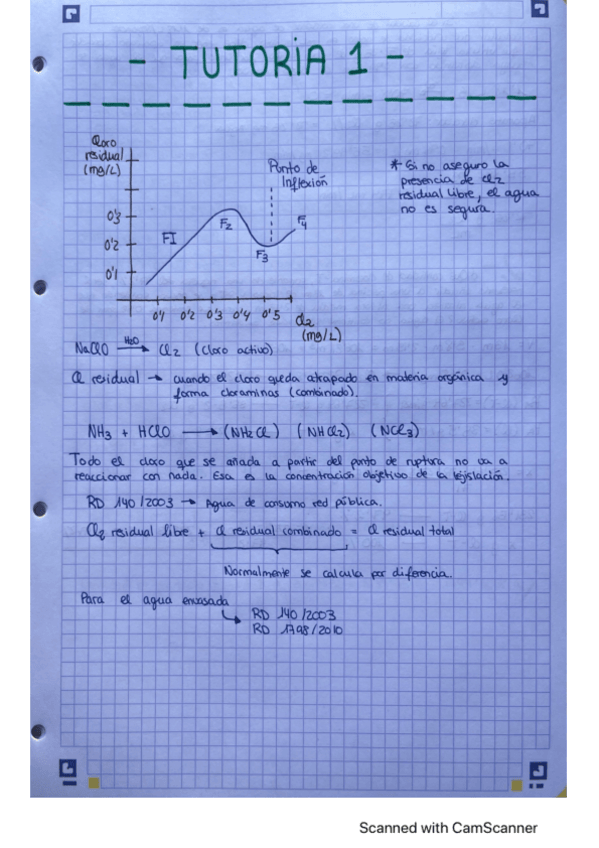 - TUTORIA 1 -
Cloro
residual
(mg/L)
Punto de
Inflexión
* Si no aseguro la
presencia de Cl2
residual libre, el agua
no es segura.
0'3
0'2
0'1
FI
F2
F3
F4
0'1 0'2 0'3 0'4 0'5
Cl2
(mg/L)
NaClO H2O → Cl2 (cloro activo)
Cl residual → cuando el cloro queda atrapado en materia orgánica y
forma cloraminas (combinado).
NH3 + HClO → (NH2Cl) (NHCl2) (NCl3)
Todo el cloro que se añada a partir del punto de ruptura no va a
reaccionar con nada. Esa es la concentración objetivo de la legislación.
RD 140/2003 → Agua de consumo red pública.
Cl2 residual libre + Cl residual combinado = Cl residual total
Normalmente se calcula por diferencia.
Para el agua envasada
RD 140/2003
RD 1798/2010
Scanned with CamScanner